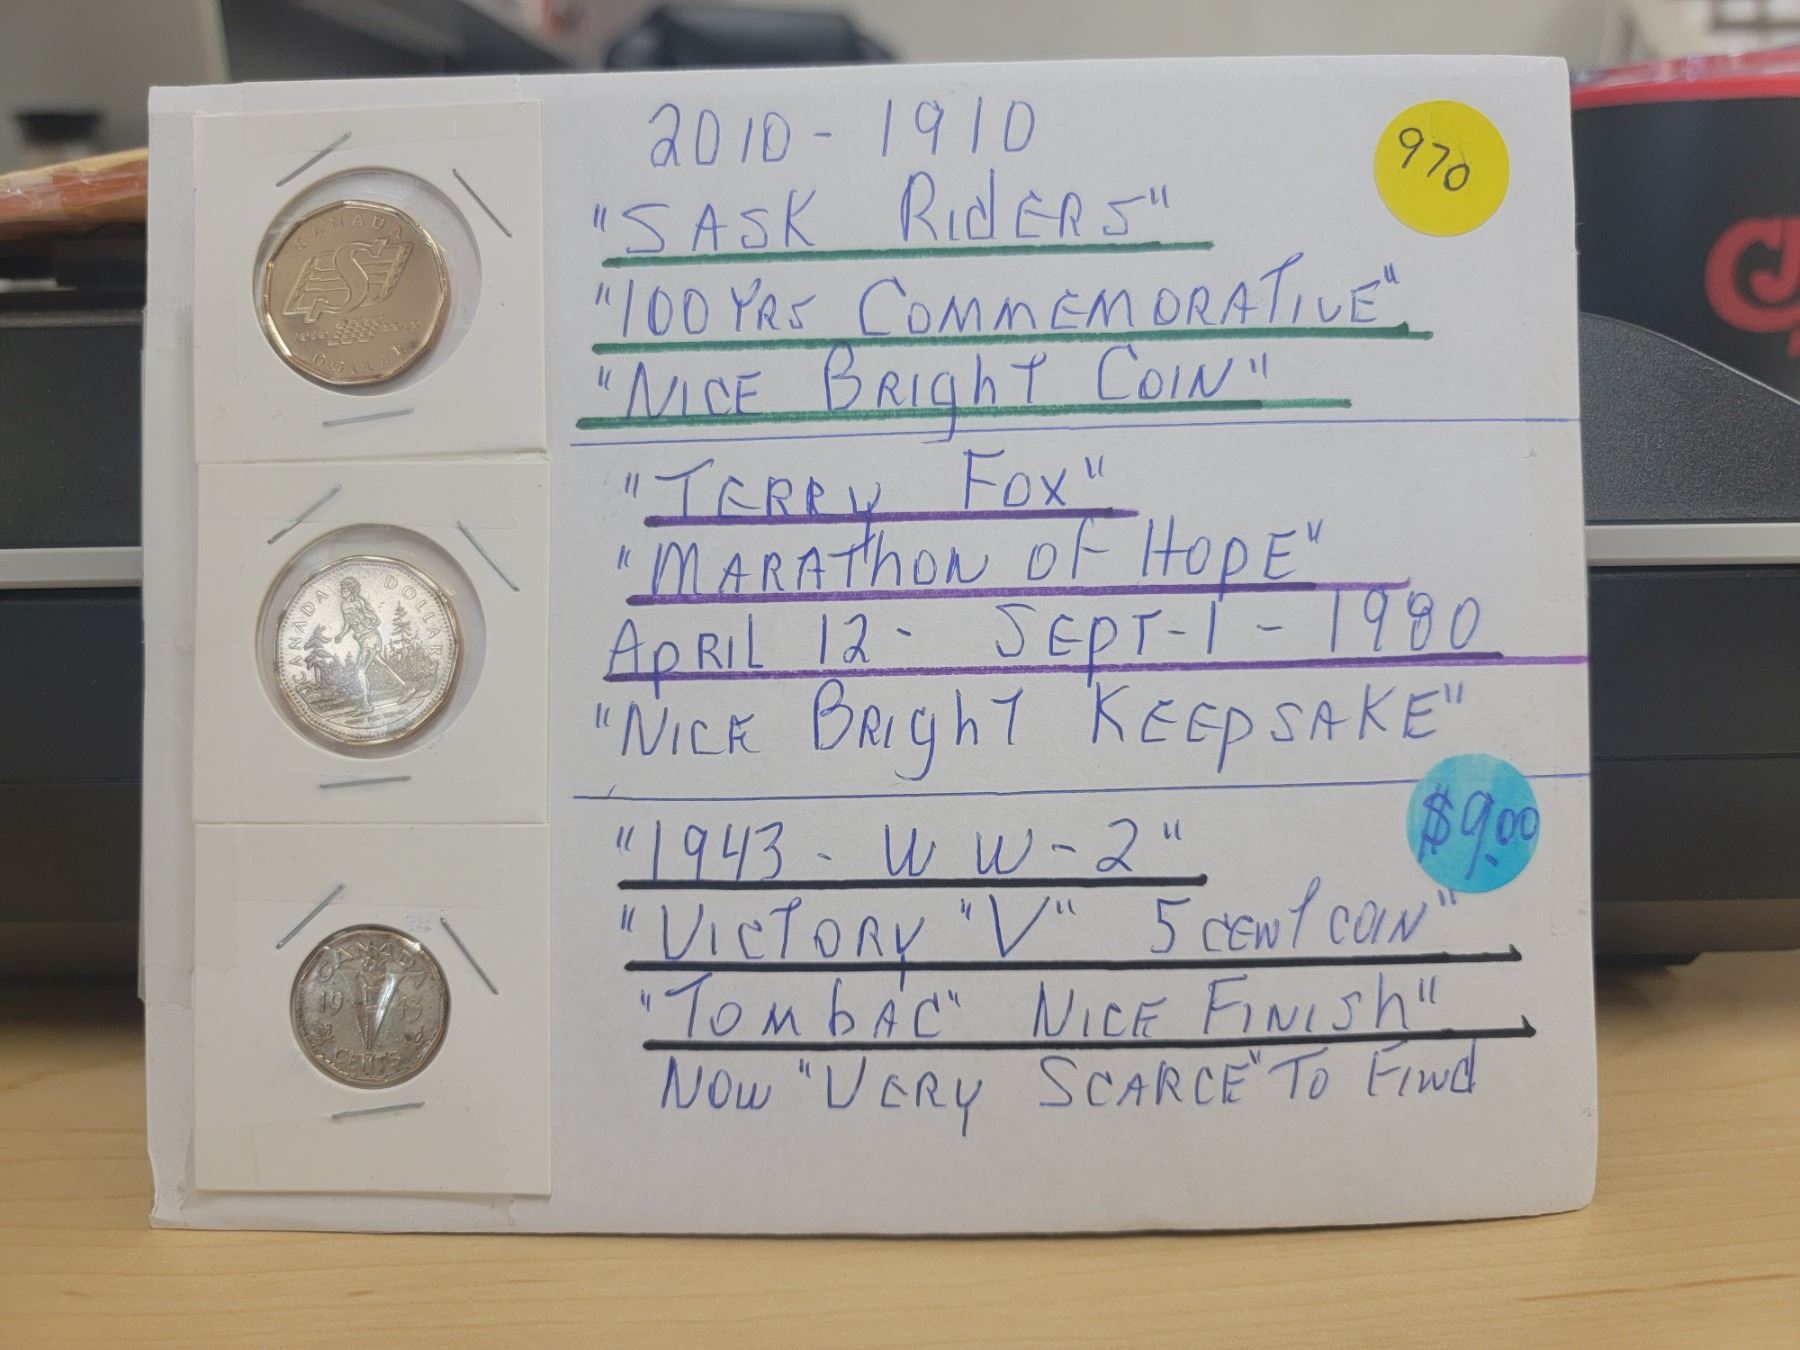 2010 - 1910
970
"SASK RIdERS"
"100 YRS COMMEMORATIVE"
"NICE BRIghT COIN"
"TERRy FOX"
"MARAThON Of HOpE"
ApRIL 12 - SEpT-1 - 1980
"NICE BRIghT KEEpSAKE"
$9.00
"1943 - W W - 2"
"VICTORy "V" 5 CENT COIN"
"TOMbAC" NICE FINISh"
NOW "VERy SCARCE" TO FINd
CANADA
DOLLAR
CANADA DOLLAR
CANADA
19 43
CENTS